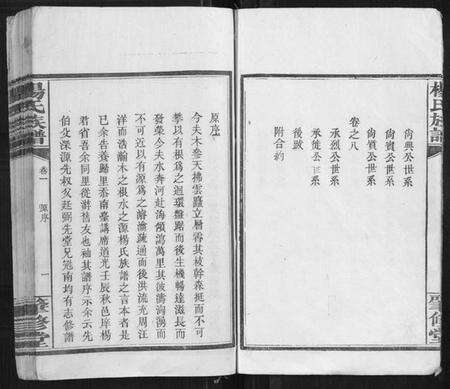 楊氏族譜
尙興公世系
尙賓公世系
尙質公世系
卷之八
承烈公世系
承徒公世系
後跋
附合約
肇修堂
楊氏族譜
卷一
原序
一
肇修堂
原序
今夫木叅天拂雲矗立層霄其枝幹森挺而不可
攀以有根爲之廻環盤踞而後生機暢達滋長而
發榮今夫水奔河赴海領瀉萬里其彼濤洶湧而
不可近以有源爲之濬瀹疏通而後洪流充周汪
洋而浩瀚木之根水之源楊氏族譜之言本者是
已余告養歸里忝南臺講席道光壬辰秋邑庠楊
君省吾余同里從游舊友也袖其譜序示余云先
伯父深源先叔友廷弼先堂兄冠南均有志修譜